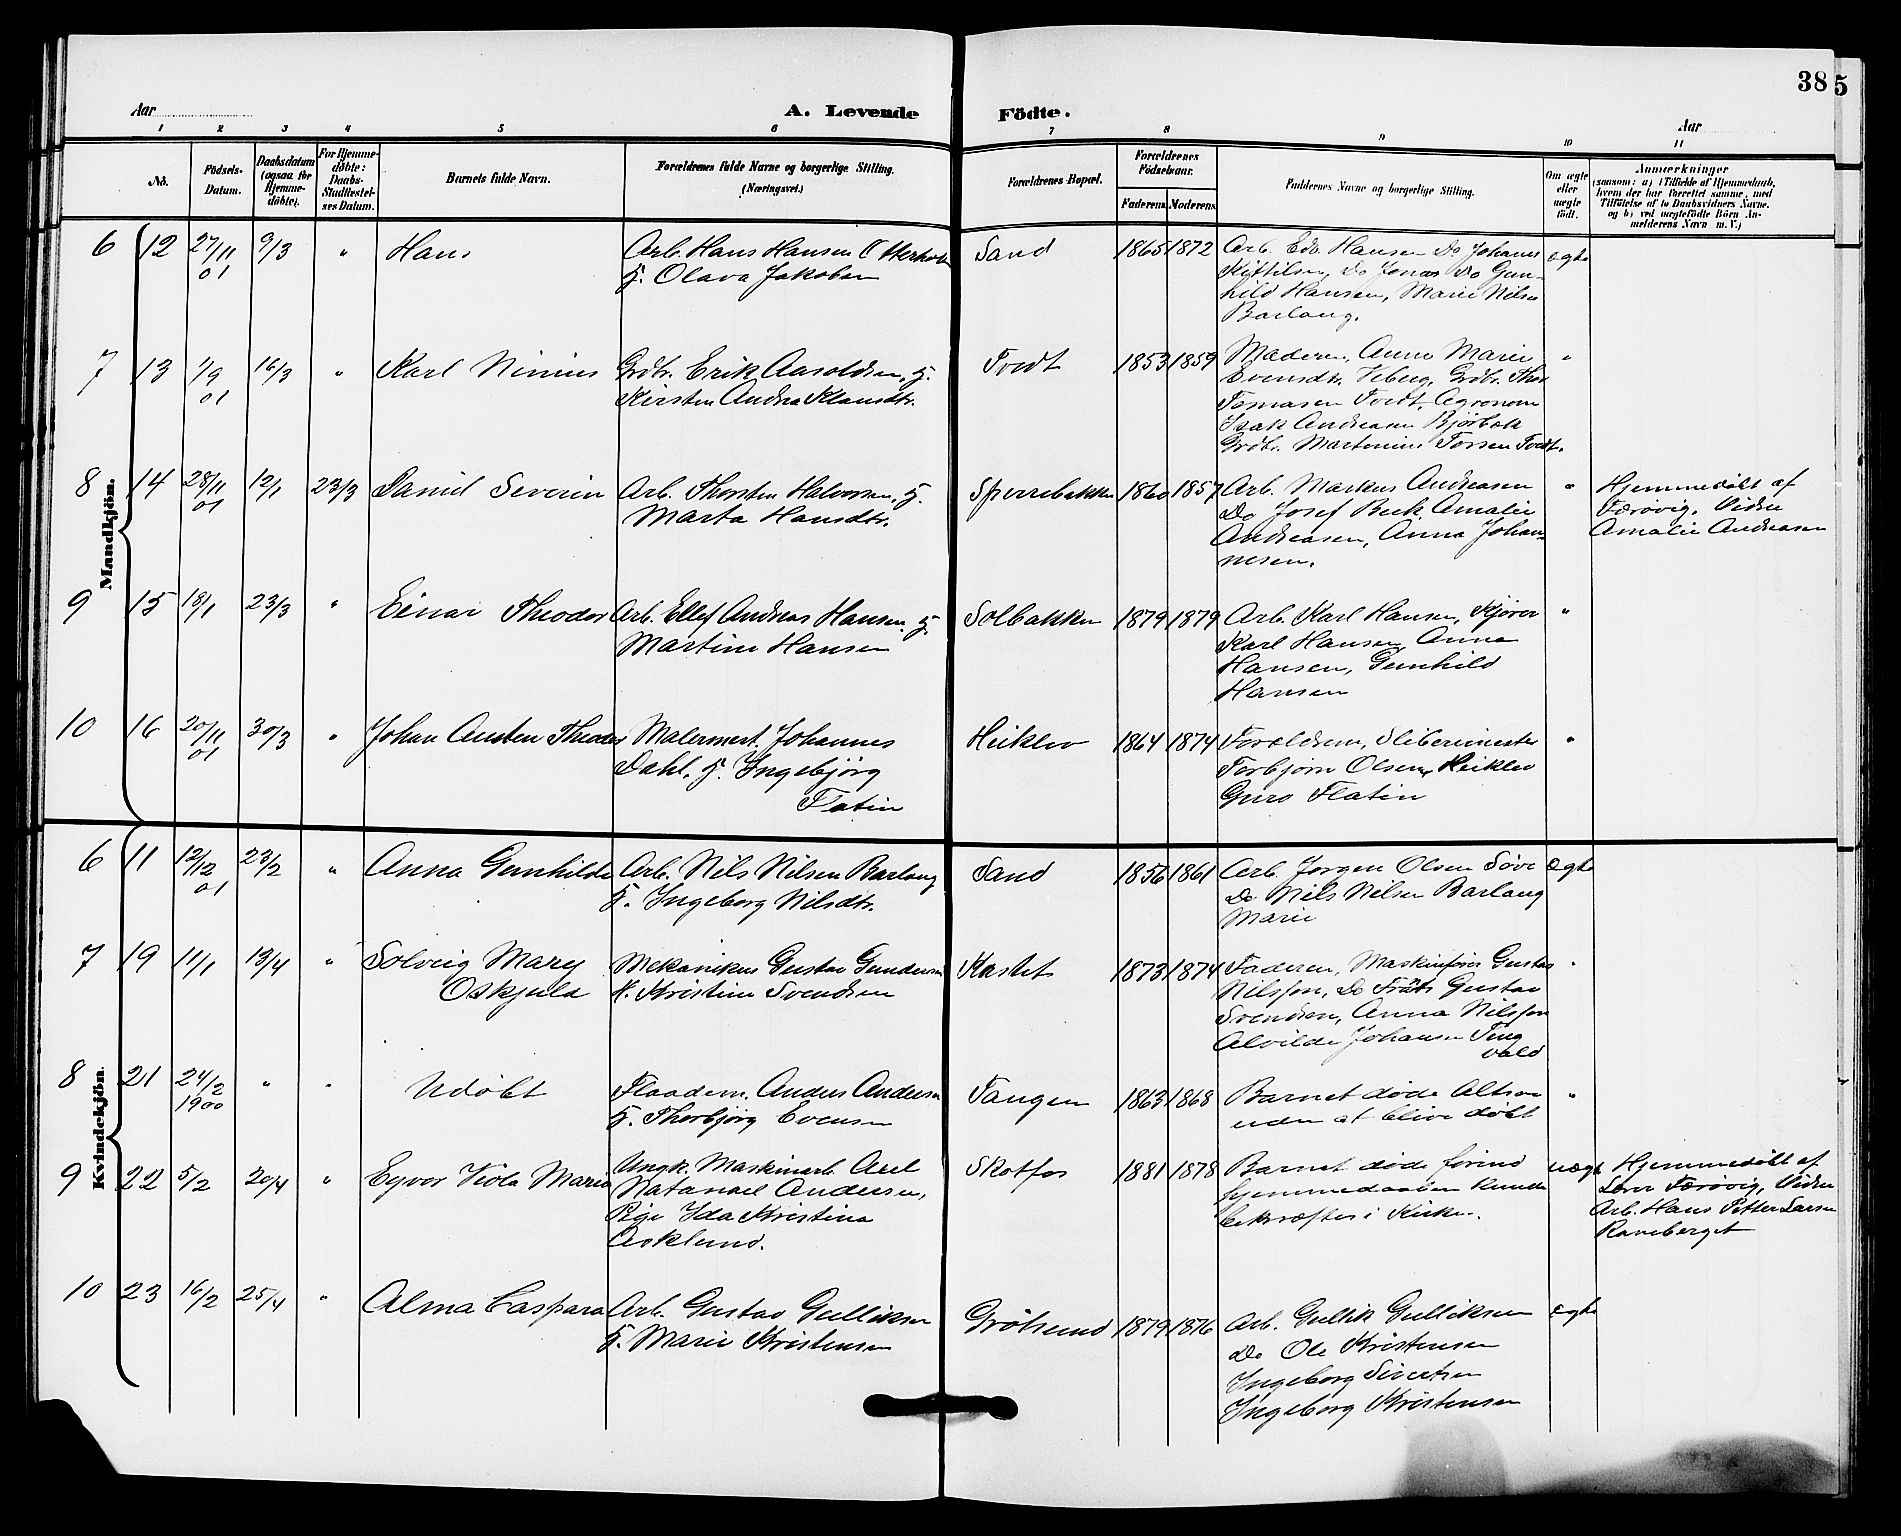 38 5
Aar
A. Levende Födte.
Aar
1 2 3 4 5 6 7 8 9 10 11
No.
Födsels-
Datum.
Daabsdatum
(ogsaa for
Hjemme-
döbte).
For Hjemme-
döbte:
Daabs-
Stadfestel-
ses Datum.
Barnets fulde Navn.
Forældrenes fulde Navne og borgerlige Stilling.
(Næringsvei.)
Forældrenes Bopæl.
Forældrenes
Födselsaar.
Faderens. Moderens.
Faddernes Navne og borgerlige Stilling.
Om ægte
eller
uægte
födt.
Anmærkninger
(saasom: a) i Tilfælde af Hjemmedaab,
hvem der har forrettet samme, med
Tilföielse af to Daabsvidners Navne.
og b) ved uægtefödte Börn An-
melderens Navn m. V.)
Mandkjön.
6 12 27/11 01 9/3 " Hans
Arb. Hans Hansen
H. Olava Jakobsen
Sand 1865 1872
Arb. Edv. Hansen Do Johannes
Kittilsen, Do Jonas Do Gun-
hild Hansen, Marie Nilsen
Barlaug.
ægte
7 13 1/9 01 16/3 " Karl Ninius
Grdbr. Erik Aaroldsen, H.
Kirsten Andrea Klausdtr.
Tvedt 1853 1859
Maderen, Anne Marie
Evensdtr. Veberg, Grdbr. Thor
Tomasen Tvedt, Agronom
Isak Andreasen Bjørbæk
Grdbr. Martinius Torsen Tvedt.
"
8 14 28/11 01 12/1 23/3 Daniel Severin
Arb. Thorsten Halvorsen, H.
Marta Hansdtr.
Sperrebakken 1860 1857
Arb. Markus Andreasen
Do Josef Beck Amalie
Andreasen, Anna Johan-
nesen.
"
Hjemmedøbt af
Færøvig. Vidne
Amalie Andreasen
9 15 18/1 23/3 " Einar Theodor
Arb. Ellef Andreas Hansen. H.
Martine Hansen
Solbakken 1879 1879
Arb. Karl Hansen, Kjører
Karl Hansen, Anne
Hansen, Gunhild
Hansen
"
10 16 20/11 01 30/3 " Johan Austen Theodor
Malermest. Johannes
Dahl. H. Ingebjørg
Flatin
Heiklev 1864 1874
Forældrene, Sliberimester
Torbjørn Olsen, Heiklev
Guro Flatin
"
Kvindekjön.
6 11 12/12 01 23/2 " Anna Gunhilde
Arb. Nils Nilsen Barlaug
H. Ingeborg Nilsdtr.
Sand 1856 1861
Arb. Jørgen Olsen Søve
Do Nils Nilsen Barlaug
Marie
ægte
7 19 11/1 13/4 " Solveig Mary
Oskjuld
Mekanikus Gustav Gundersen
H. Kristine Svendsen
Kastet 1873 1874
Faderen, Maskinfører Gustav
Nilsson, Do Gustav
Svendsen, Anna Nilsson
Alvilde Johansen Ting
vald
"
8 21 24/2 1900 " " Udøbt
Flaadem. Anders Andersen
H. Thorbjørg Evensen
Tangen 1863 1868
Barnet døde Altsaa
uden at blive døbt
"
9 22 5/2 20/4 " Eyvor Viola Maria
Ungk. Maskinarb. Axel
Natanael Andersen,
Pige Ida Kristina
Asklund.
Skotfos 1881 1878
Barnet døde forind
hjemmedaaben kunde
bekræftes i Kirken.
uægte
Hjemmedøbt af
Lærer Færøvig, Vidne
Arb. Hans Petter Larsen
Raneberget
10 23 16/2 25/4 " Alma Caspara
Arb. Gustav Gulliksen
H. Marie Kristensen
Grøtsund 1879 1876
Arb. Gullik Gulliksen
Do Ole Kristensen
Ingeborg Sivertsen
Ingeborg Kristensen
ægte